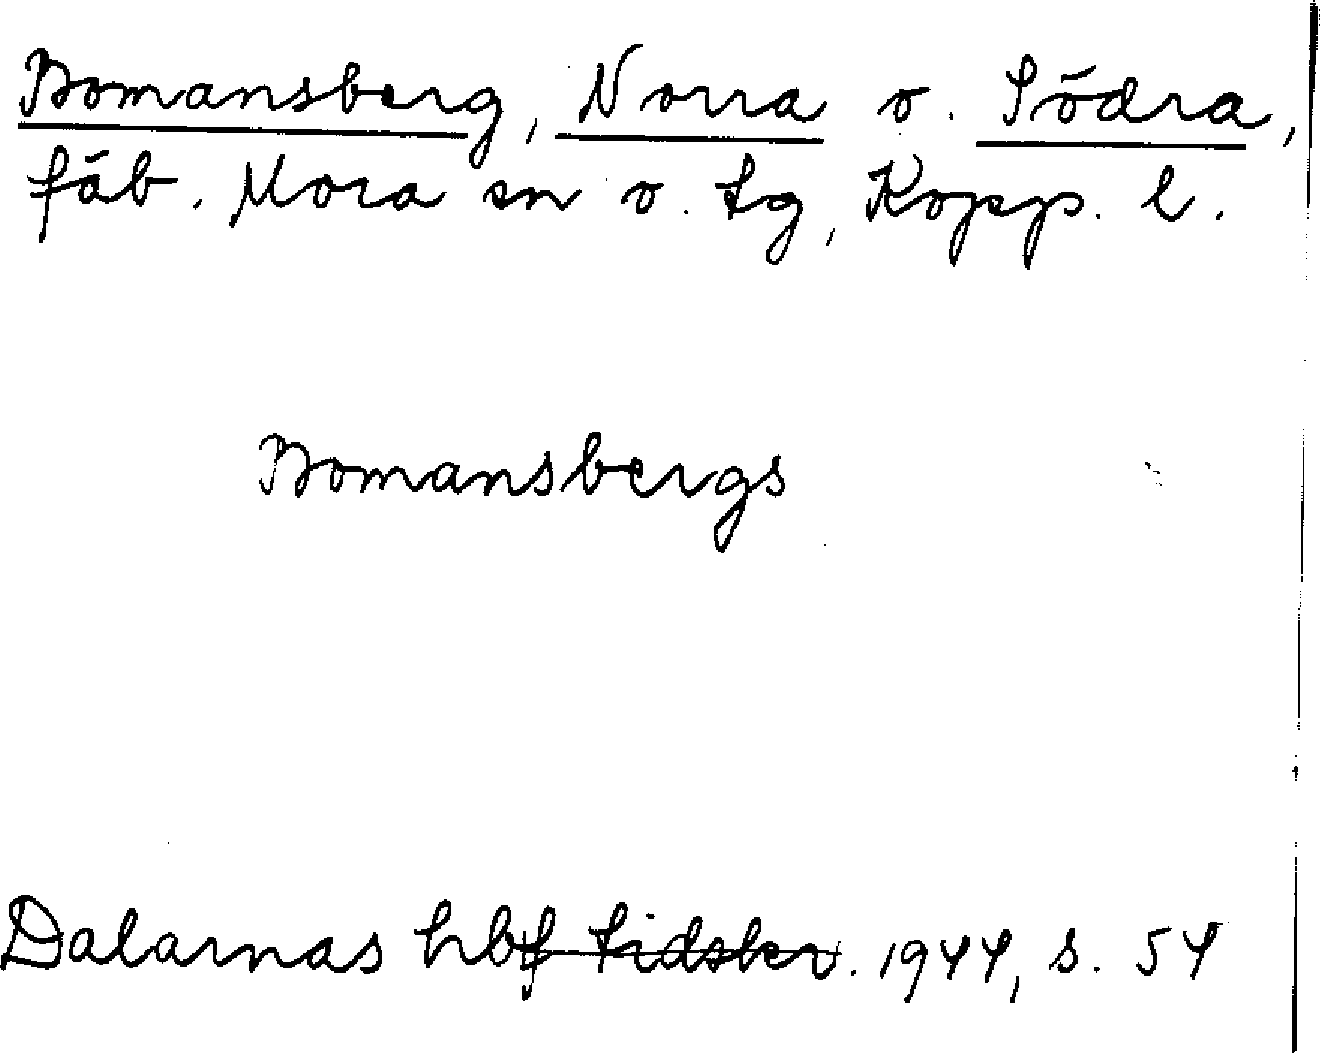 Bomansberg, Norra o. Södra,
fäb. Mora sn o. tg, Kopp. l.
Bomansbergs
Dalarnas hbf tidskr. 1944, s. 54